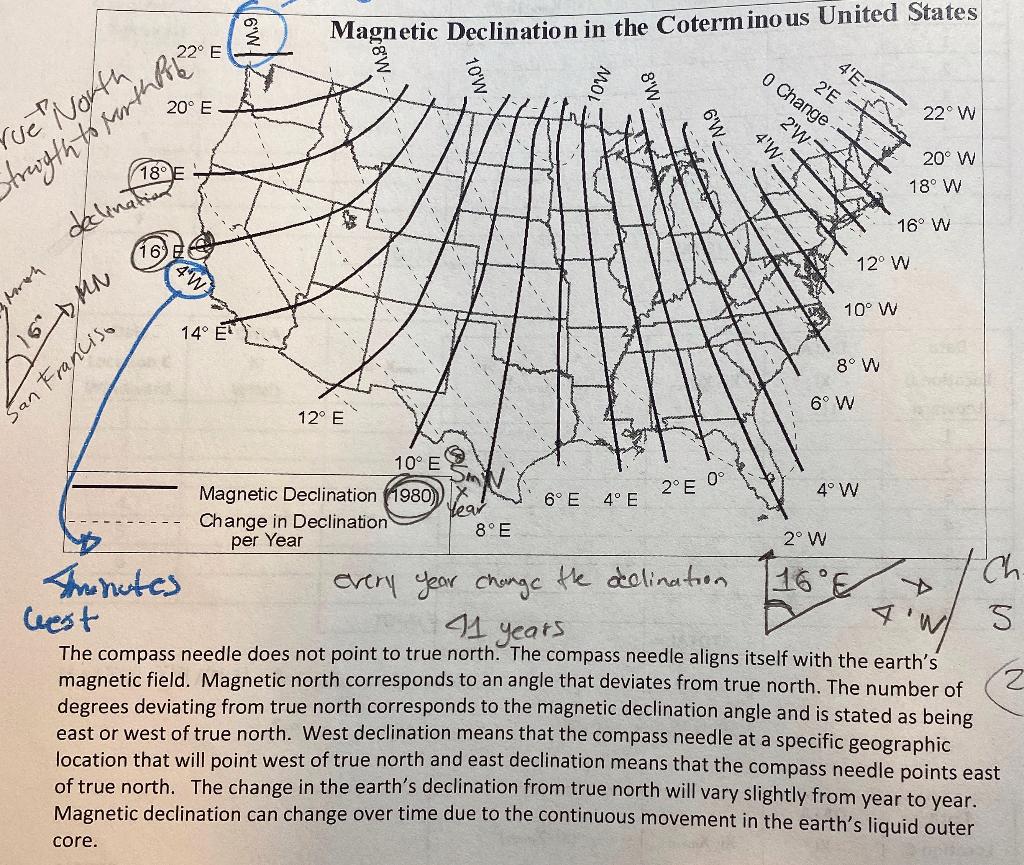 Magnetic Declination in the Coterminous United States
6'W
22° E
8'W
10'W
10'W
8'W
6'W
4'W
2'W
0 Change
2'E
4'E
22° W
North
20° E
Strength to North Pole
20° W
18° E
18° W
declination
16° W
16° E
12° W
4'W
MN
10° W
16°
14° E
San Francisco
8° W
6° W
12° E
10° E
5m W
x
year
Magnetic Declination (1980)
Change in Declination
per Year
8° E
6° E
4° E
2° E
0°
4° W
2° W
4minutes
West
every year change the declination
41 years
16°E
4'W
Ch
5
The compass needle does not point to true north. The compass needle aligns itself with the earth's
magnetic field. Magnetic north corresponds to an angle that deviates from true north. The number of
degrees deviating from true north corresponds to the magnetic declination angle and is stated as being
east or west of true north. West declination means that the compass needle at a specific geographic
location that will point west of true north and east declination means that the compass needle points east
of true north. The change in the earth's declination from true north will vary slightly from year to year.
Magnetic declination can change over time due to the continuous movement in the earth's liquid outer
core.